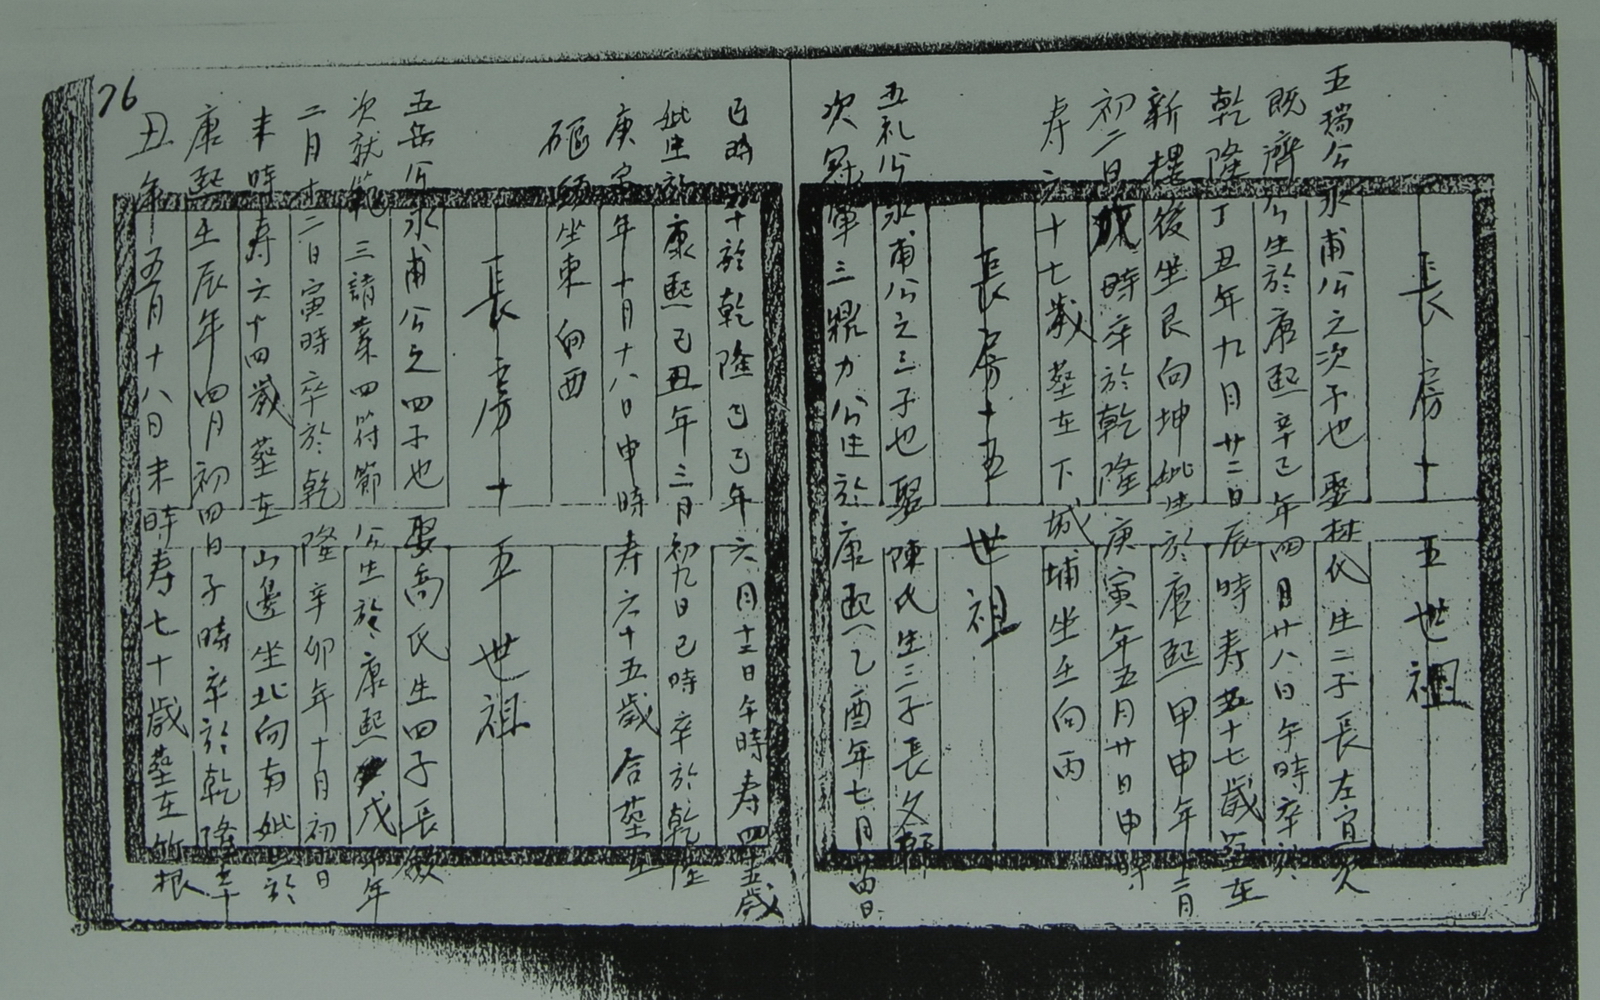 76
長房十五世祖
五瑞公永甫公之次子也娶林氏生二子長左宜次
既濟公生於康熙辛巳年四月廿八日午時卒於
乾隆丁丑年九月廿二日辰時寿五十七歲葬在
新樓後坐艮向坤妣生於康熙甲申年十二月
初二日戌時卒於乾隆庚寅年五月廿日申時
寿六十七歲葬在下城埔坐壬向丙
長房十五世祖
五礼公永甫公之三子也娶陳氏生三子長文軒
次冠軍三鼎力公生於康熙乙酉年七月廿四日
巳時卒於乾隆己巳年六月十二日午時寿四十五歲
妣生於康熙己丑年三月初九日巳時卒於乾隆
庚寅年十月十八日申時寿六十五歲合葬在
頭坐東向西
長房十五世祖
五岳公永甫公之四子也娶高氏生四子長敏
次就範三請業四符節公生於康熙戊子年
二月十二日寅時卒於乾隆辛卯年十月初日
未時寿六十四歲葬在山邊坐北向南妣生於
康熙壬辰年四月初四日子時卒於乾隆辛
丑年五月十八日未時寿七十歲葬在竹根